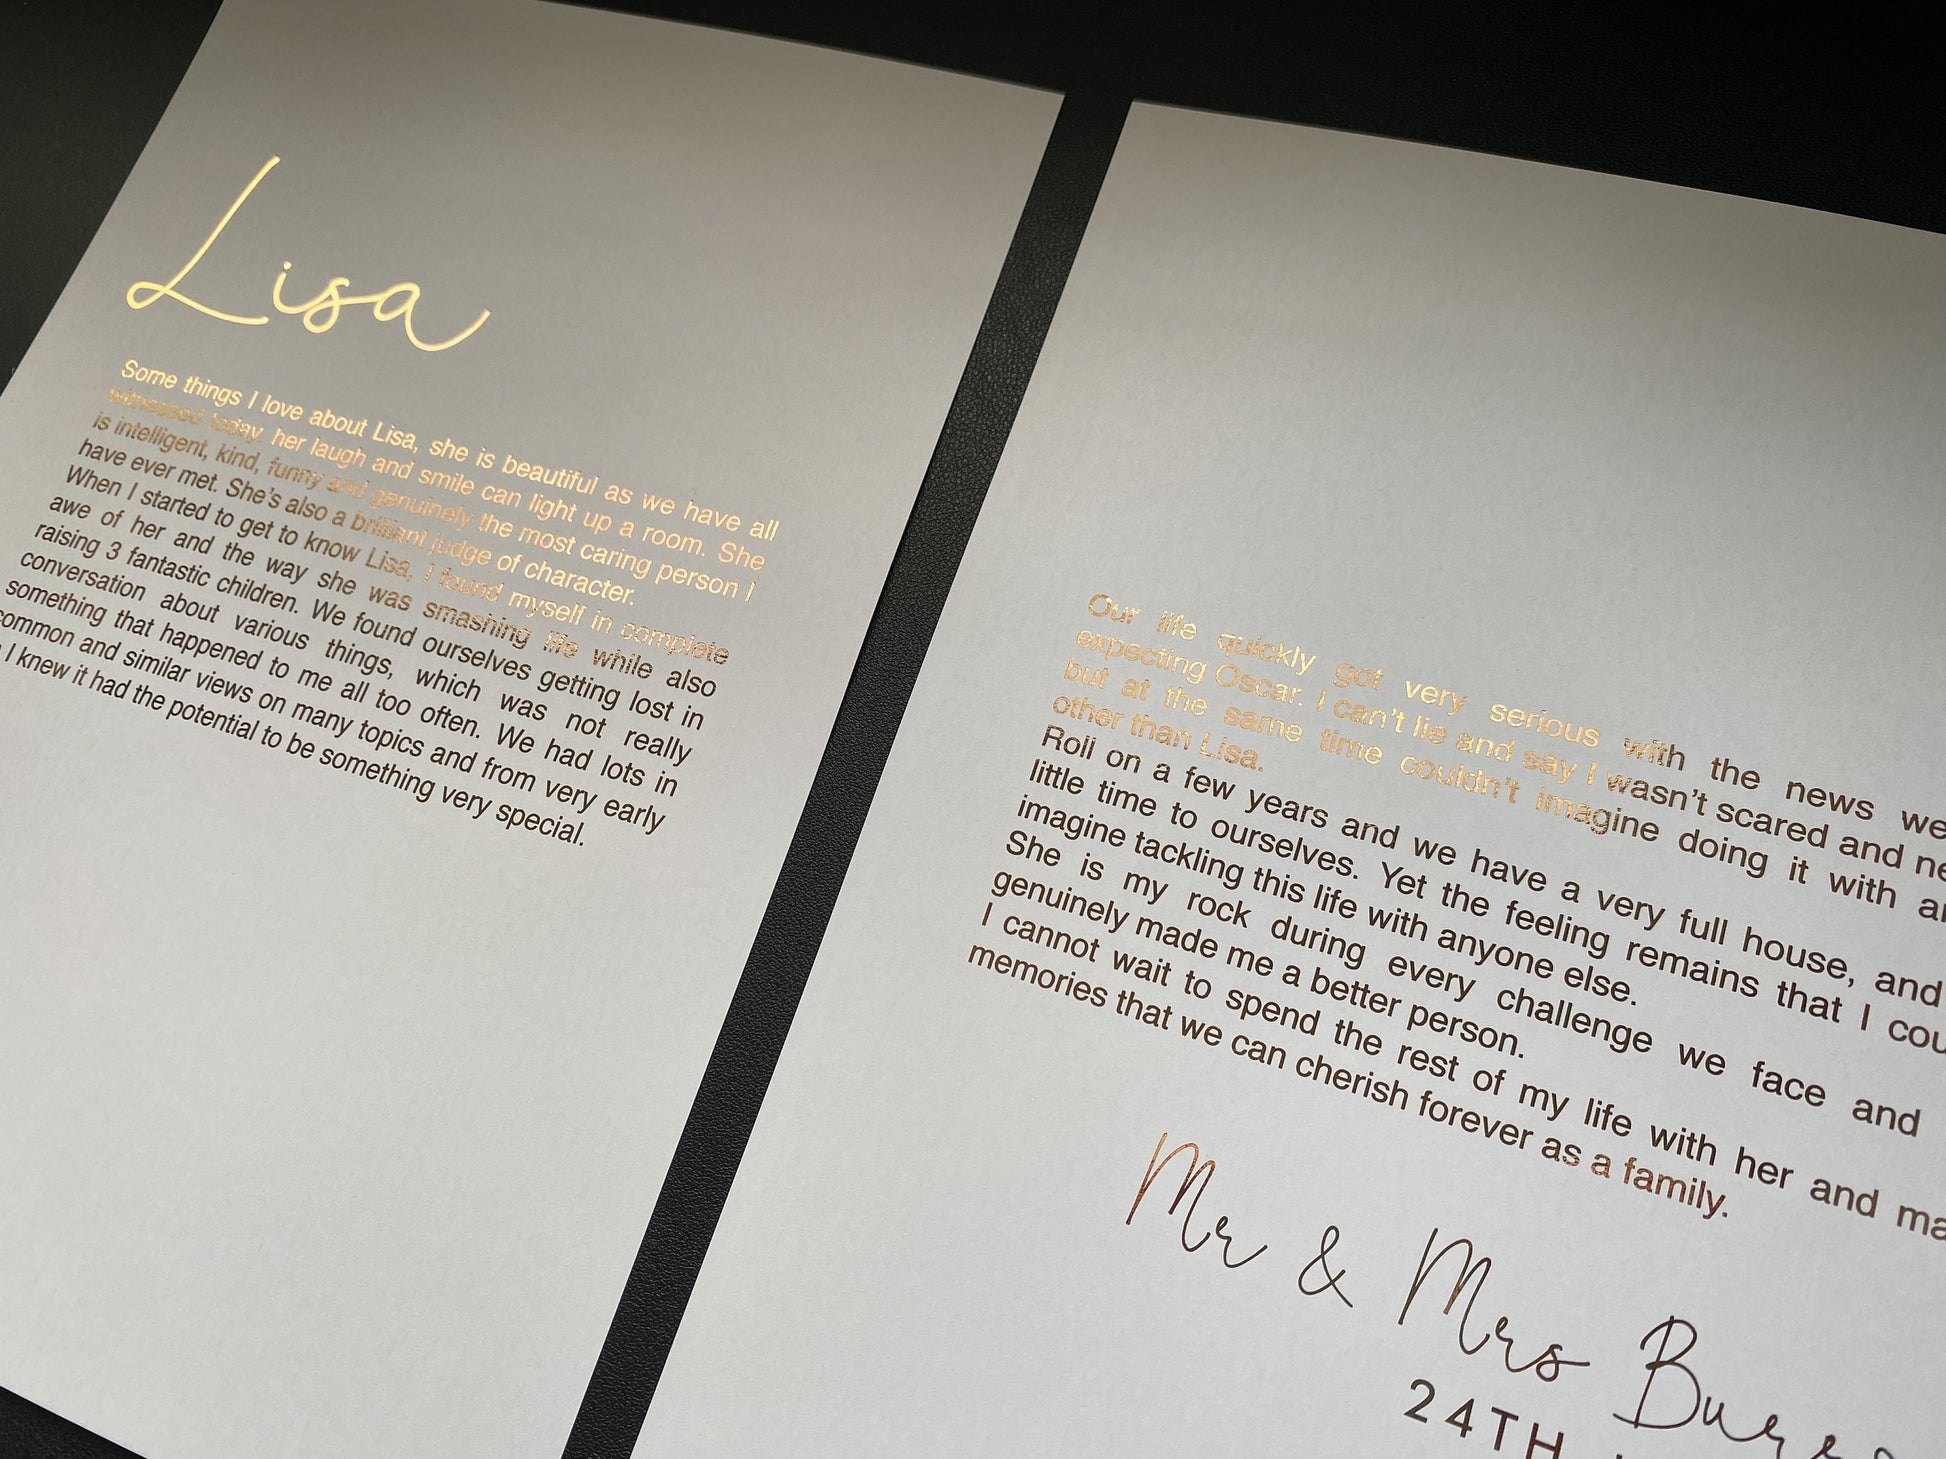 Lisa
Some things I love about Lisa, she is beautiful as we have all
witnessed today her laugh and smile can light up a room. She
is intelligent, kind, funny and genuinely the most caring person I
have ever met. She's also a brilliant judge of character.
When I started to get to know Lisa, I found myself in complete
awe of her and the way she was smashing life while also
raising 3 fantastic children. We found ourselves getting lost in
conversation about various things, which was not really
something that happened to me all too often. We had lots in
common and similar views on many topics and from very early
I knew it had the potential to be something very special.
Our life quickly got very serious with the news we
expecting Oscar. I can't lie and say I wasn't scared and
but at the same time couldn't imagine doing it with
other than Lisa.
Roll on a few years and we have a very full house, and
little time to ourselves. Yet the feeling remains that I
imagine tackling this life with anyone else.
She is my rock during every challenge we face and
genuinely made me a better person.
I cannot wait to spend the rest of my life with her and
memories that we can cherish forever as a family.
Mr & Mrs
24TH